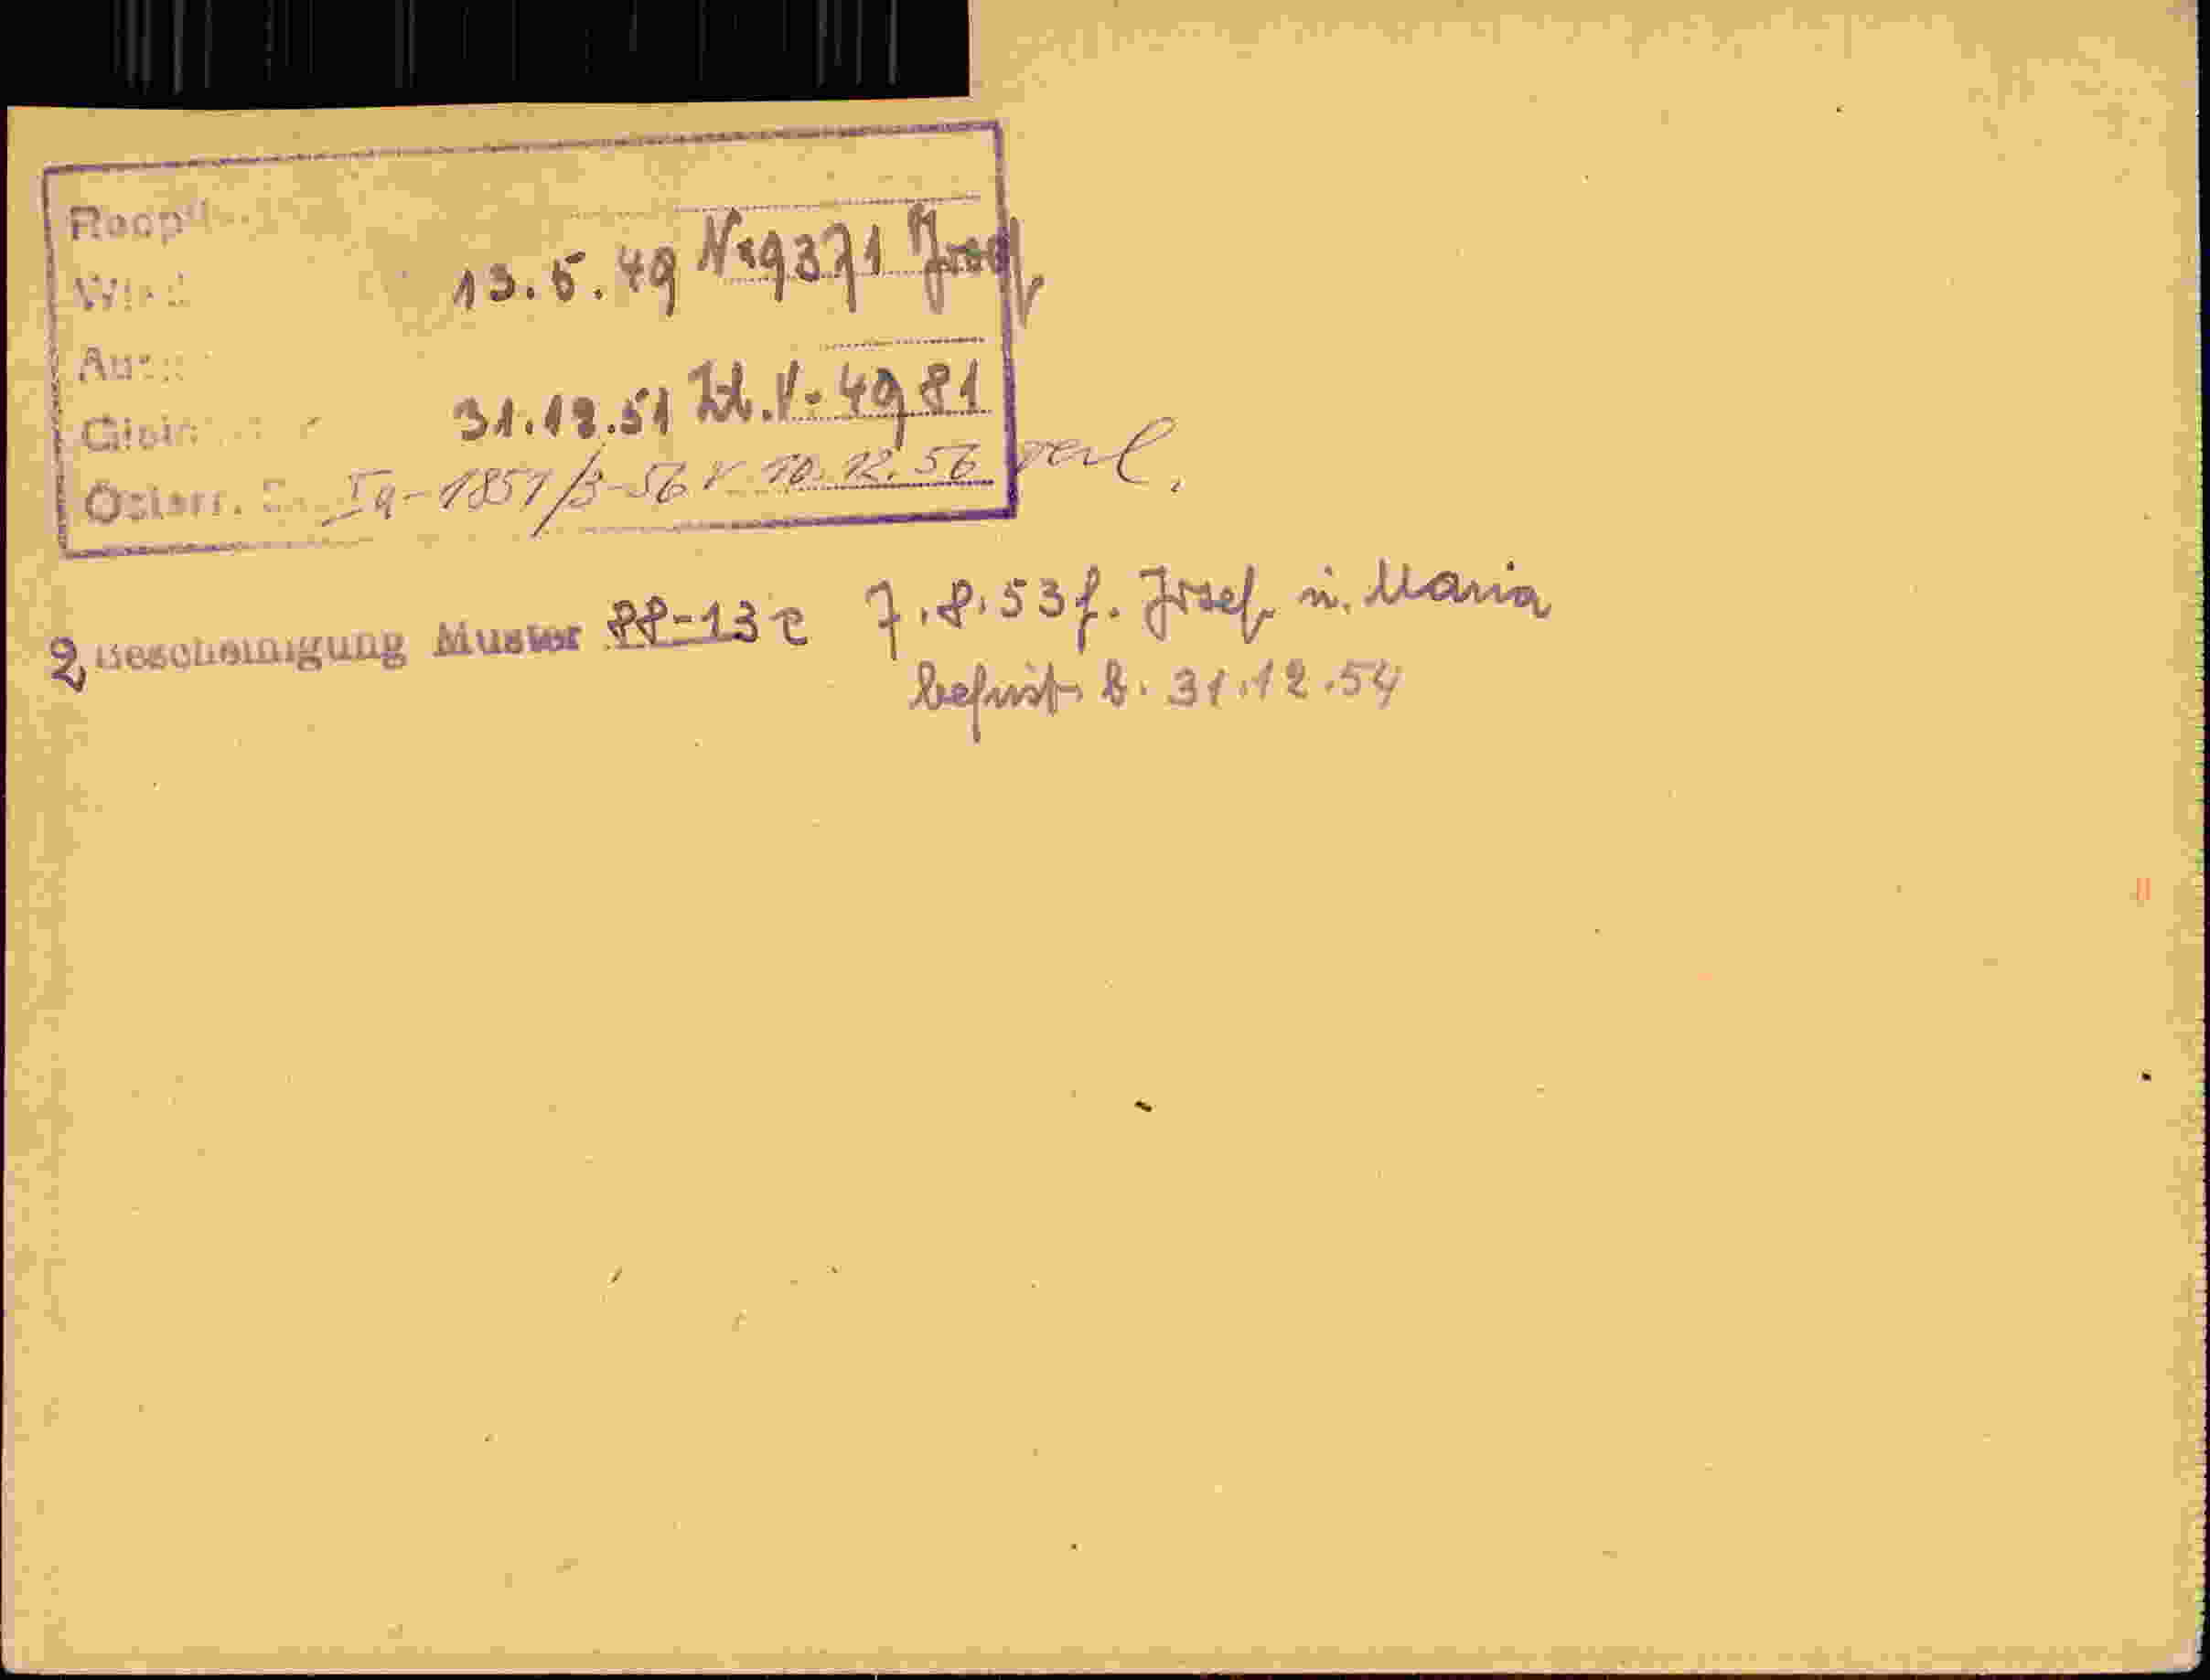 13.5.49 Nr 9371 Josef
31.12.51 Zl. V. 4981
Österr. Ia-1851/3-56 v. 10.12.56 verl.
2 Bescheinigung Muster 88-13c 7.8.53 f. Josef u. Maria
befrist. b. 31.12.54